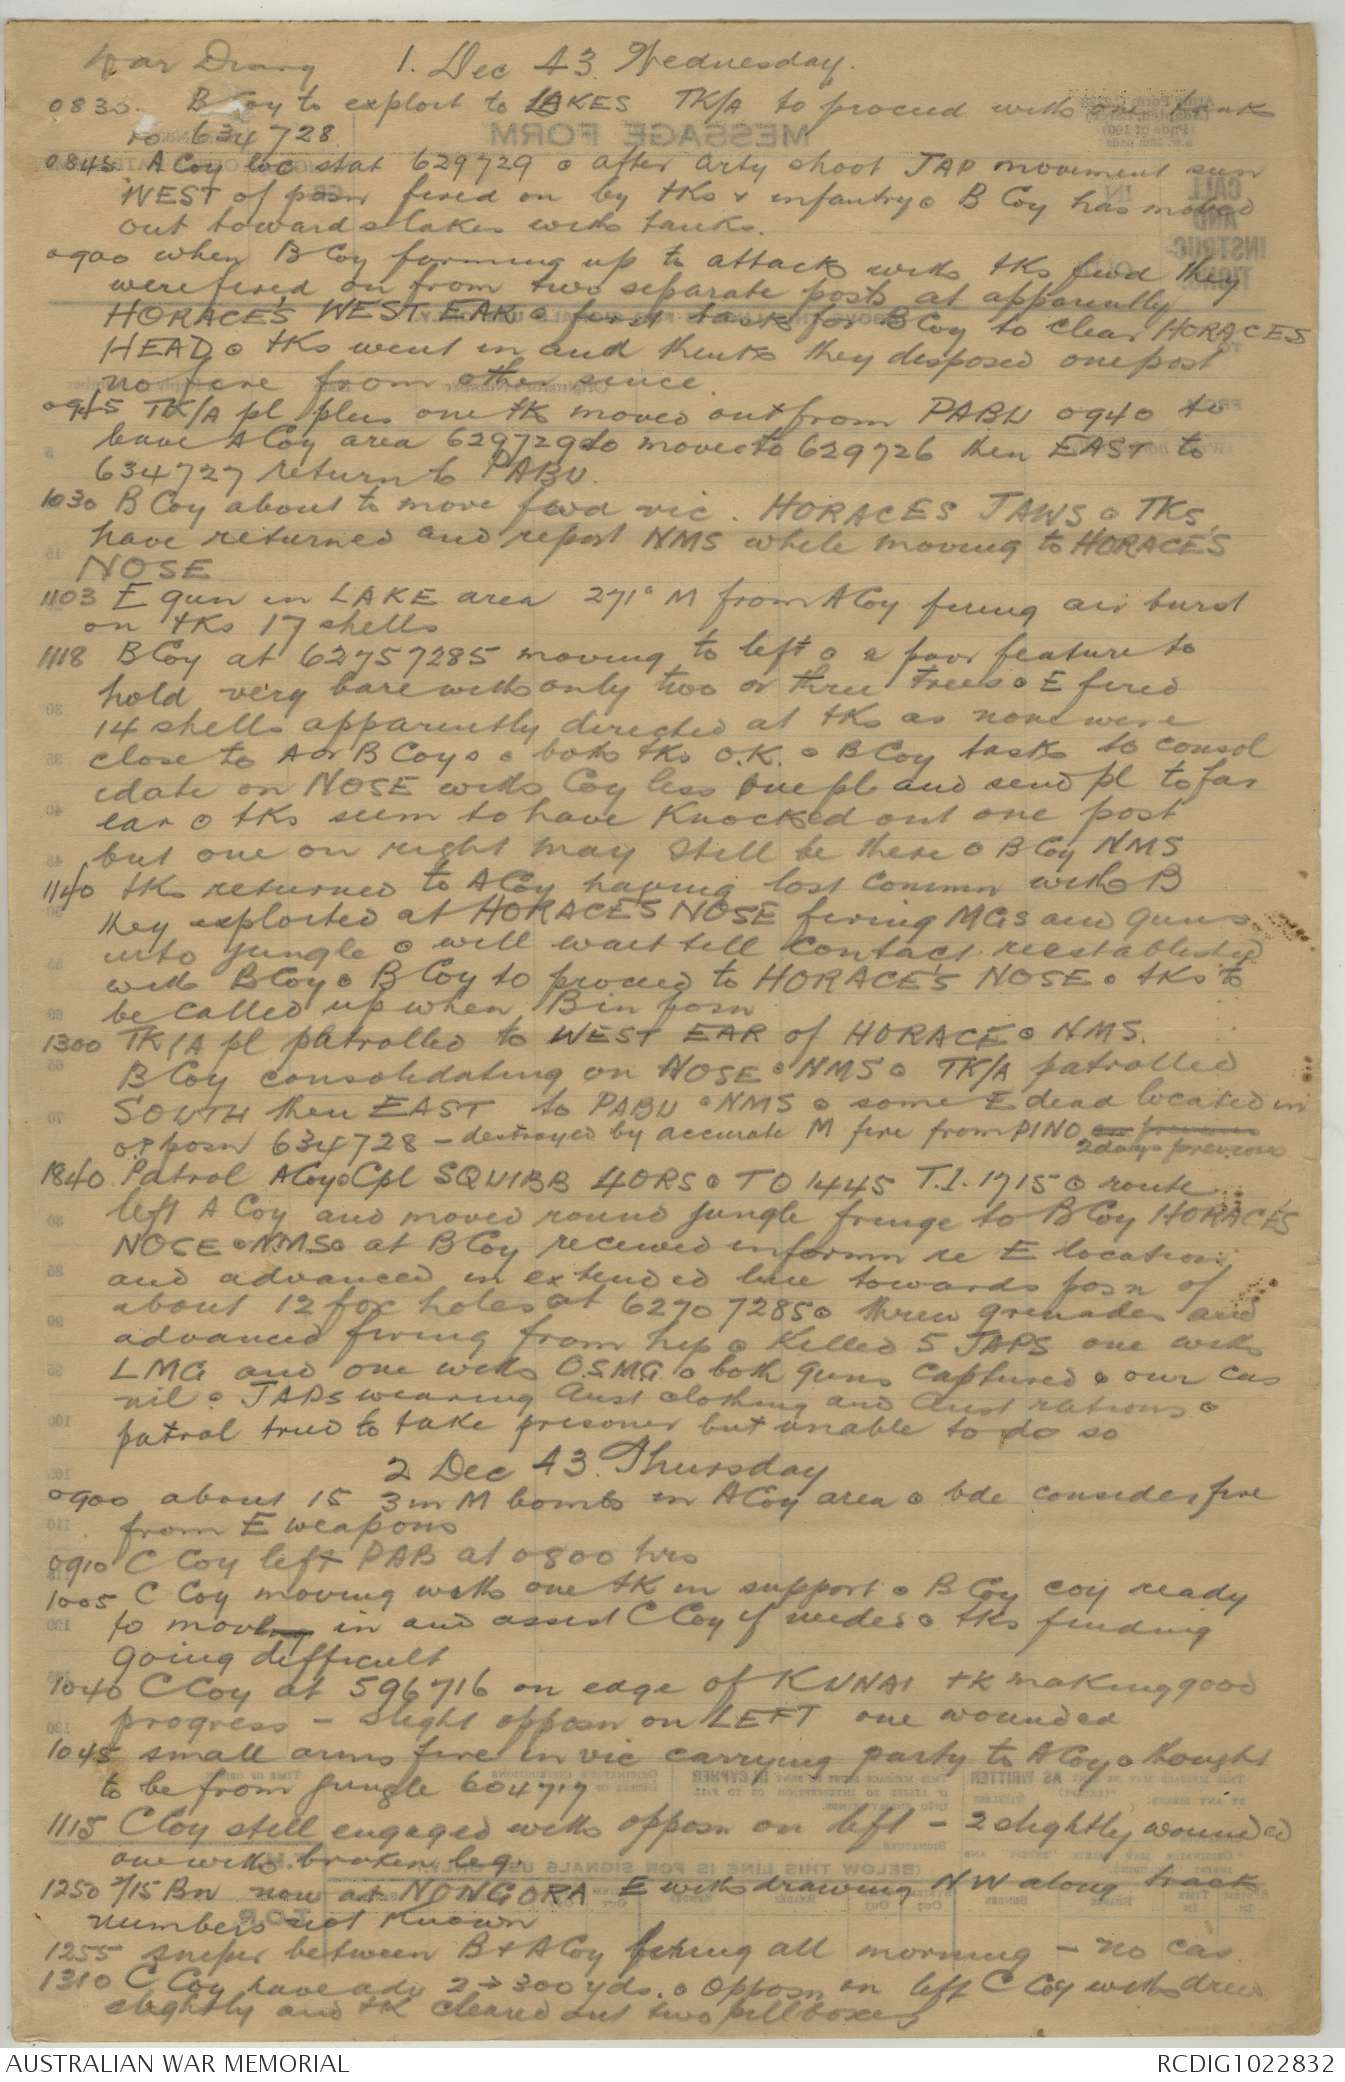 War Diary 1. Dec 43. Wednesday.
0830. B Coy to exploit to LAKES TK/A to proceed with one tank
to 634728
0845. A Coy loc stat 629729 o after arty shoot JAP movement seen
WEST of posn fired on by tks & infantry o B Coy has moved
out towards lakes with tanks.
0900 when B Coy forming up to attack with tks fwd they
were fired on from two separate posts at apparently
HORACE'S WEST EAR o first task for B Coy to clear HORACES
HEAD o tks went in and think they disposed one post
no fire from other since.
0945 TK/A pl plus one tk moved out from PABU 0940 to
leave A Coy area 629729 to move to 629726 then EAST to
634727 return to PABU.
1030 B Coy about to move fwd vic. HORACES JAWS o TKS
have returned and report NMS while moving to HORACE'S
NOSE
1103 E gun in LAKE area 271° M from A Coy firing air burst
on tks 17 shells
1118 B Coy at 62757285 moving to left o a poor feature to
hold very bare with only two or three trees o E fired
14 shells apparently directed at tks as none were
close to A or B Coys o both tks O.K. o B Coy task to consol
idate on NOSE with Coy less one pl and send pl to far
ear o tks seem to have knocked out one post
but one on right may still be there o B Coy NMS
1140 tks returned to A Coy having lost commn with B
they exploited at HORACE'S NOSE firing MGs and guns
into jungle o will wait till contact reestablished
with B Coy o B Coy to proceed to HORACE'S NOSE o tks to
be called up when B in posn
1300 TK/A pl patrolled to WEST EAR of HORACE o NMS.
B Coy consolidating on NOSE o NMS o TK/A patrolled
SOUTH then EAST to PABU o NMS o some E dead located in
o.p posn 634728 - destroyed by accurate M fire from PINO on previous
2 days previous
1840 Patrol A Coy o Cpl SQUIBB 4 ORS o TO 1445 T.I. 1715 o route
left A Coy and moved round jungle fringe to B Coy HORACE'S
NOSE o NMS o at B Coy received informn re E location
and advanced in extended line towards posn of
about 12 fox holes at 62707285 o threw grenades and
advanced firing from hip o Killed 5 JAPS one with
LMG and one with O.SMG. o both guns captured o our cas
nil o JAPS wearing Aust clothing and Aust rations o
patrol tried to take prisoner but unable to do so
2 Dec 43. Thursday
0900 about 15 3 in M bombs in A Coy area o bde consider fire
from E weapons
0910 C Coy left PAB at 0800 hrs
1005 C Coy moving with one tk in support o B Coy coy ready
to moving in and assist C Coy if needed o tks finding
going difficult
1040 C Coy at 596716 on edge of KUNAI tk making good
progress - slight opposn on LEFT one wounded
1045 small arms fire in vic carrying party to A Coy o thought
to be from jungle 604717
1115 C Coy still engaged with opposn on left - 2 slightly wounded
one with broken leg.
1250 2/15 Bn now at NONGORA E withdrawing NW along track
numbers not known
1255 sniper between B & A Coy firing all morning - no cas
1310 C Coy have adv 2 → 300 yds. o Opposn on left C Coy withdrew
slightly and tk cleared out two pillboxes
MESSAGE FORM
CALL
AND
INSTRUC
TIONS
IN
(BELOW THIS LINE IS FOR SIGNALS USE ONLY)
AUSTRALIAN WAR MEMORIAL
RCDIG1022832